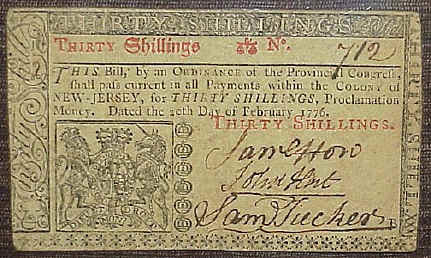 THIRTY SHILLINGS
THIRTY Shillings No. 712
THIS Bill, by an ORDINANCE of the Provincial CONGRESS,
shall pass current in all Payments within the COLONY of
NEW-JERSEY, for THIRTY SHILLINGS, Proclamation
Money. Dated the 20th Day of February 1776.
THIRTY SHILLINGS.
Saml How
John Hart
Sam Tucker